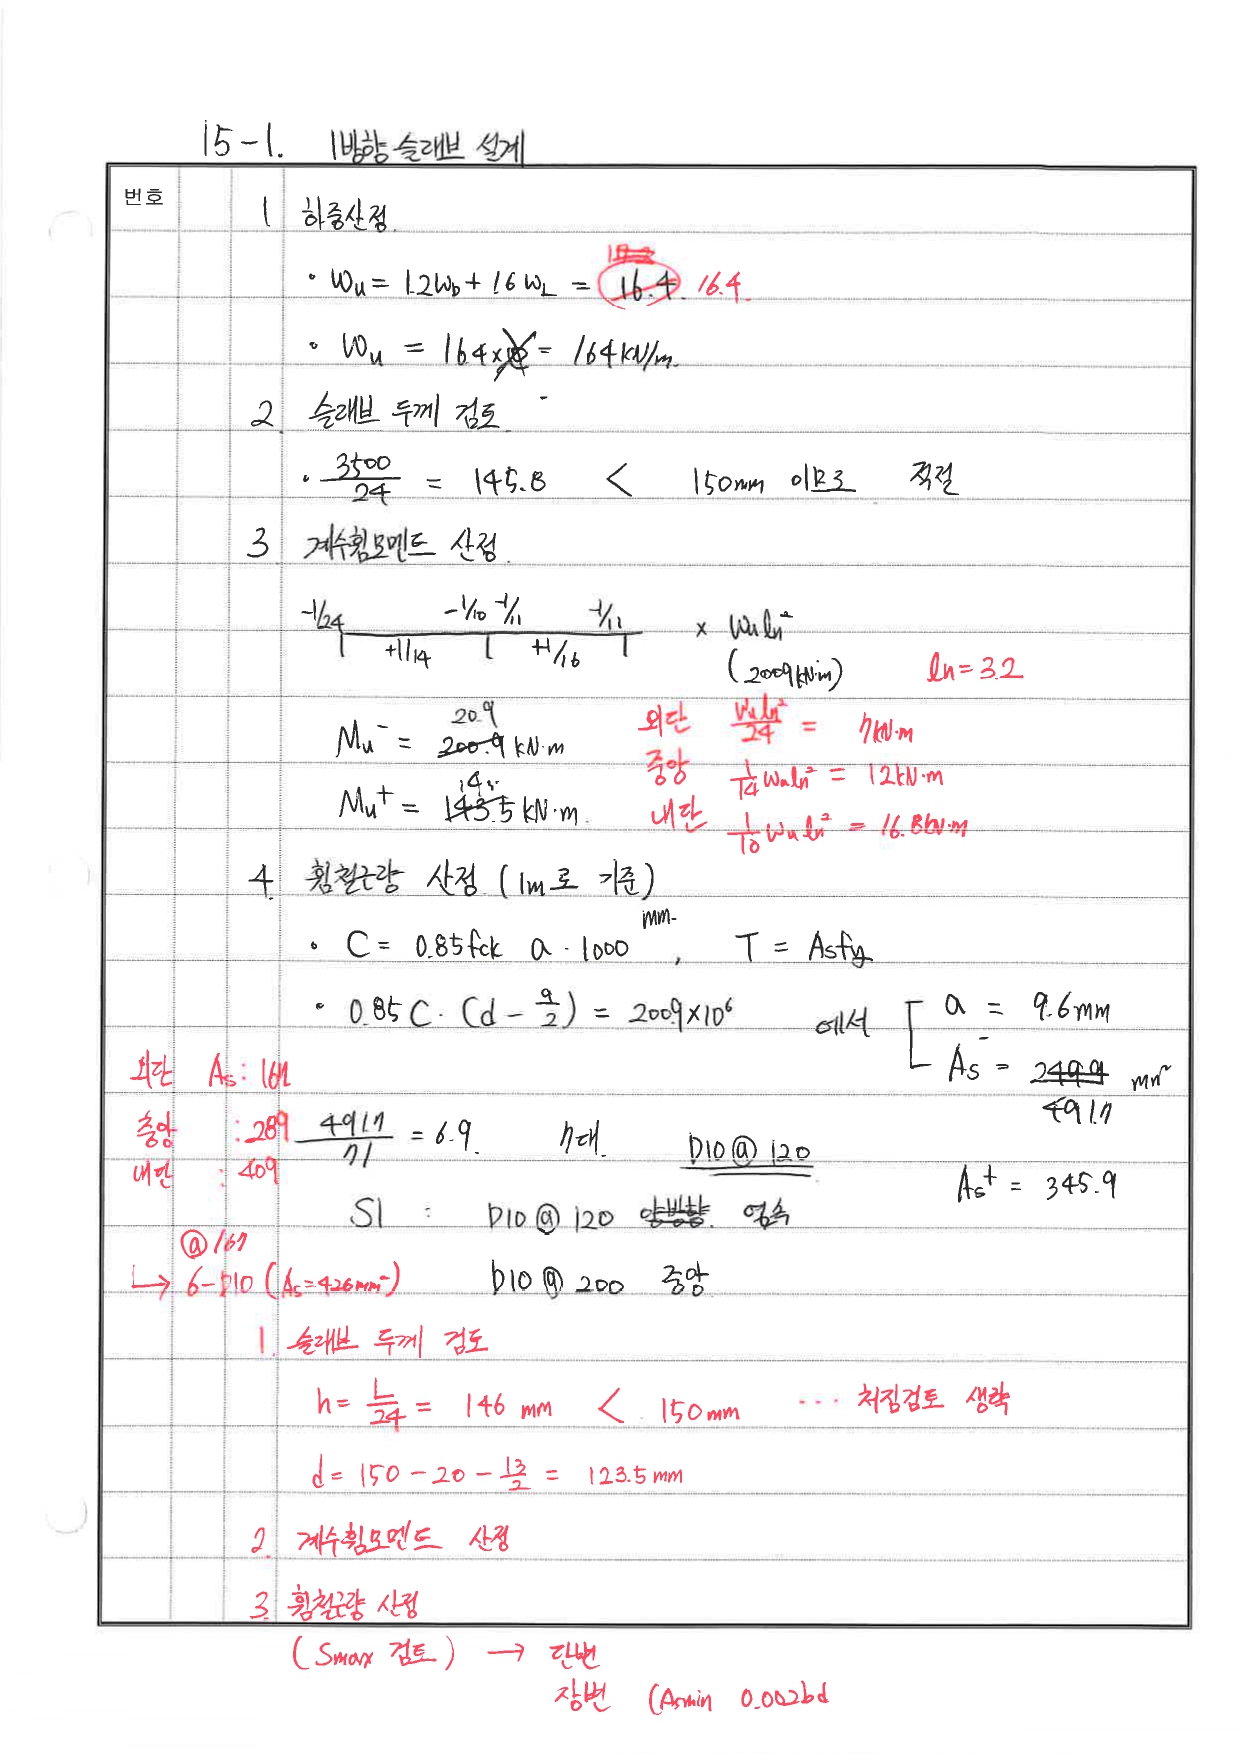 15-1. 1방향 슬래브 설계
번호
1 하중산정.
· Wu = 1.2WD + 1.6WL = 16.4 16.4
· Wu = 16.4 × = 16.4 kN/m.
2. 슬래브 두께 검토
· 3500/24 = 145.8 < 150mm 이므로 적절
3 계수휨모멘트 산정.
-1/24 -1/10 -1/11 -1/11 × Wuln²
+1/14 +1/16 (200.9kN·m) ln = 3.2
Mu⁻ = 200.9 20.9 kN·m
외단 Wuln²/24 = 7kN·m
중앙 1/14 Wuln² = 12kN·m
Mu⁺ = 143.5 14. kN·m.
내단 1/10 Wuln² = 16.8kN·m
4. 휨철근량 산정 (1m로 기준)
· C = 0.85fck a · 1000 mm, T = Asfy
· 0.85 C · (d - a/2) = 20.09×10⁶ 에서 a = 9.6mm
As⁻ = 2499 mm²
491.7
외단 As : 167
중앙 : 289
내단 : 409
491.7/71 = 6.9. 7대. D10 @ 120
As⁺ = 345.9
S1 : D10 @ 120 양방향. 연속
@167
↳ 6-D10 (As=426mm²)
D10 @ 200 중앙
1. 슬래브 두께 검토
h = L/24 = 146 mm < 150mm ··· 처짐검토 생략
d = 150 - 20 - 13/2 = 123.5 mm
2. 계수휨모멘트 산정
3. 휨철근량 산정
(Smax 검토) → 단변
장변 (Asmin 0.002bd